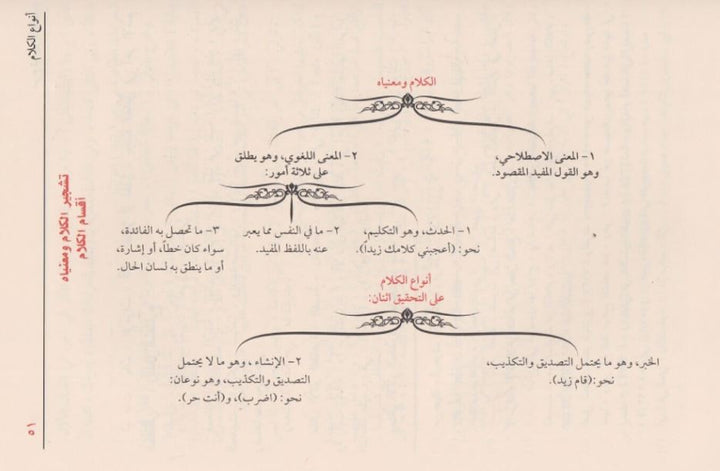 أنواع الكلام
تشجير الكلام ومعنياه
أقسام الكلام
الكلام ومعنياه
١- المعنى الاصطلاحي،
وهو القول المفيد المقصود.
٢- المعنى اللغوي، وهو يطلق
على ثلاثة أمور:
١- الحدث، وهو التكليم،
نحو: (أعجبني كلامك زيداً).
٢- ما في النفس مما يعبر
عنه باللفظ المفيد.
٣- ما تحصل به الفائدة،
سواء كان خطاً، أو إشارة،
أو ما ينطق به لسان الحال.
أنواع الكلام
على التحقيق اثنان:
الخبر، وهو ما يحتمل التصديق والتكذيب،
نحو:(قام زيد).
٢- الإنشاء، وهو ما لا يحتمل
التصديق والتكذيب، وهو نوعان:
نحو: (اضرب)، و(أنت حر).
٥١